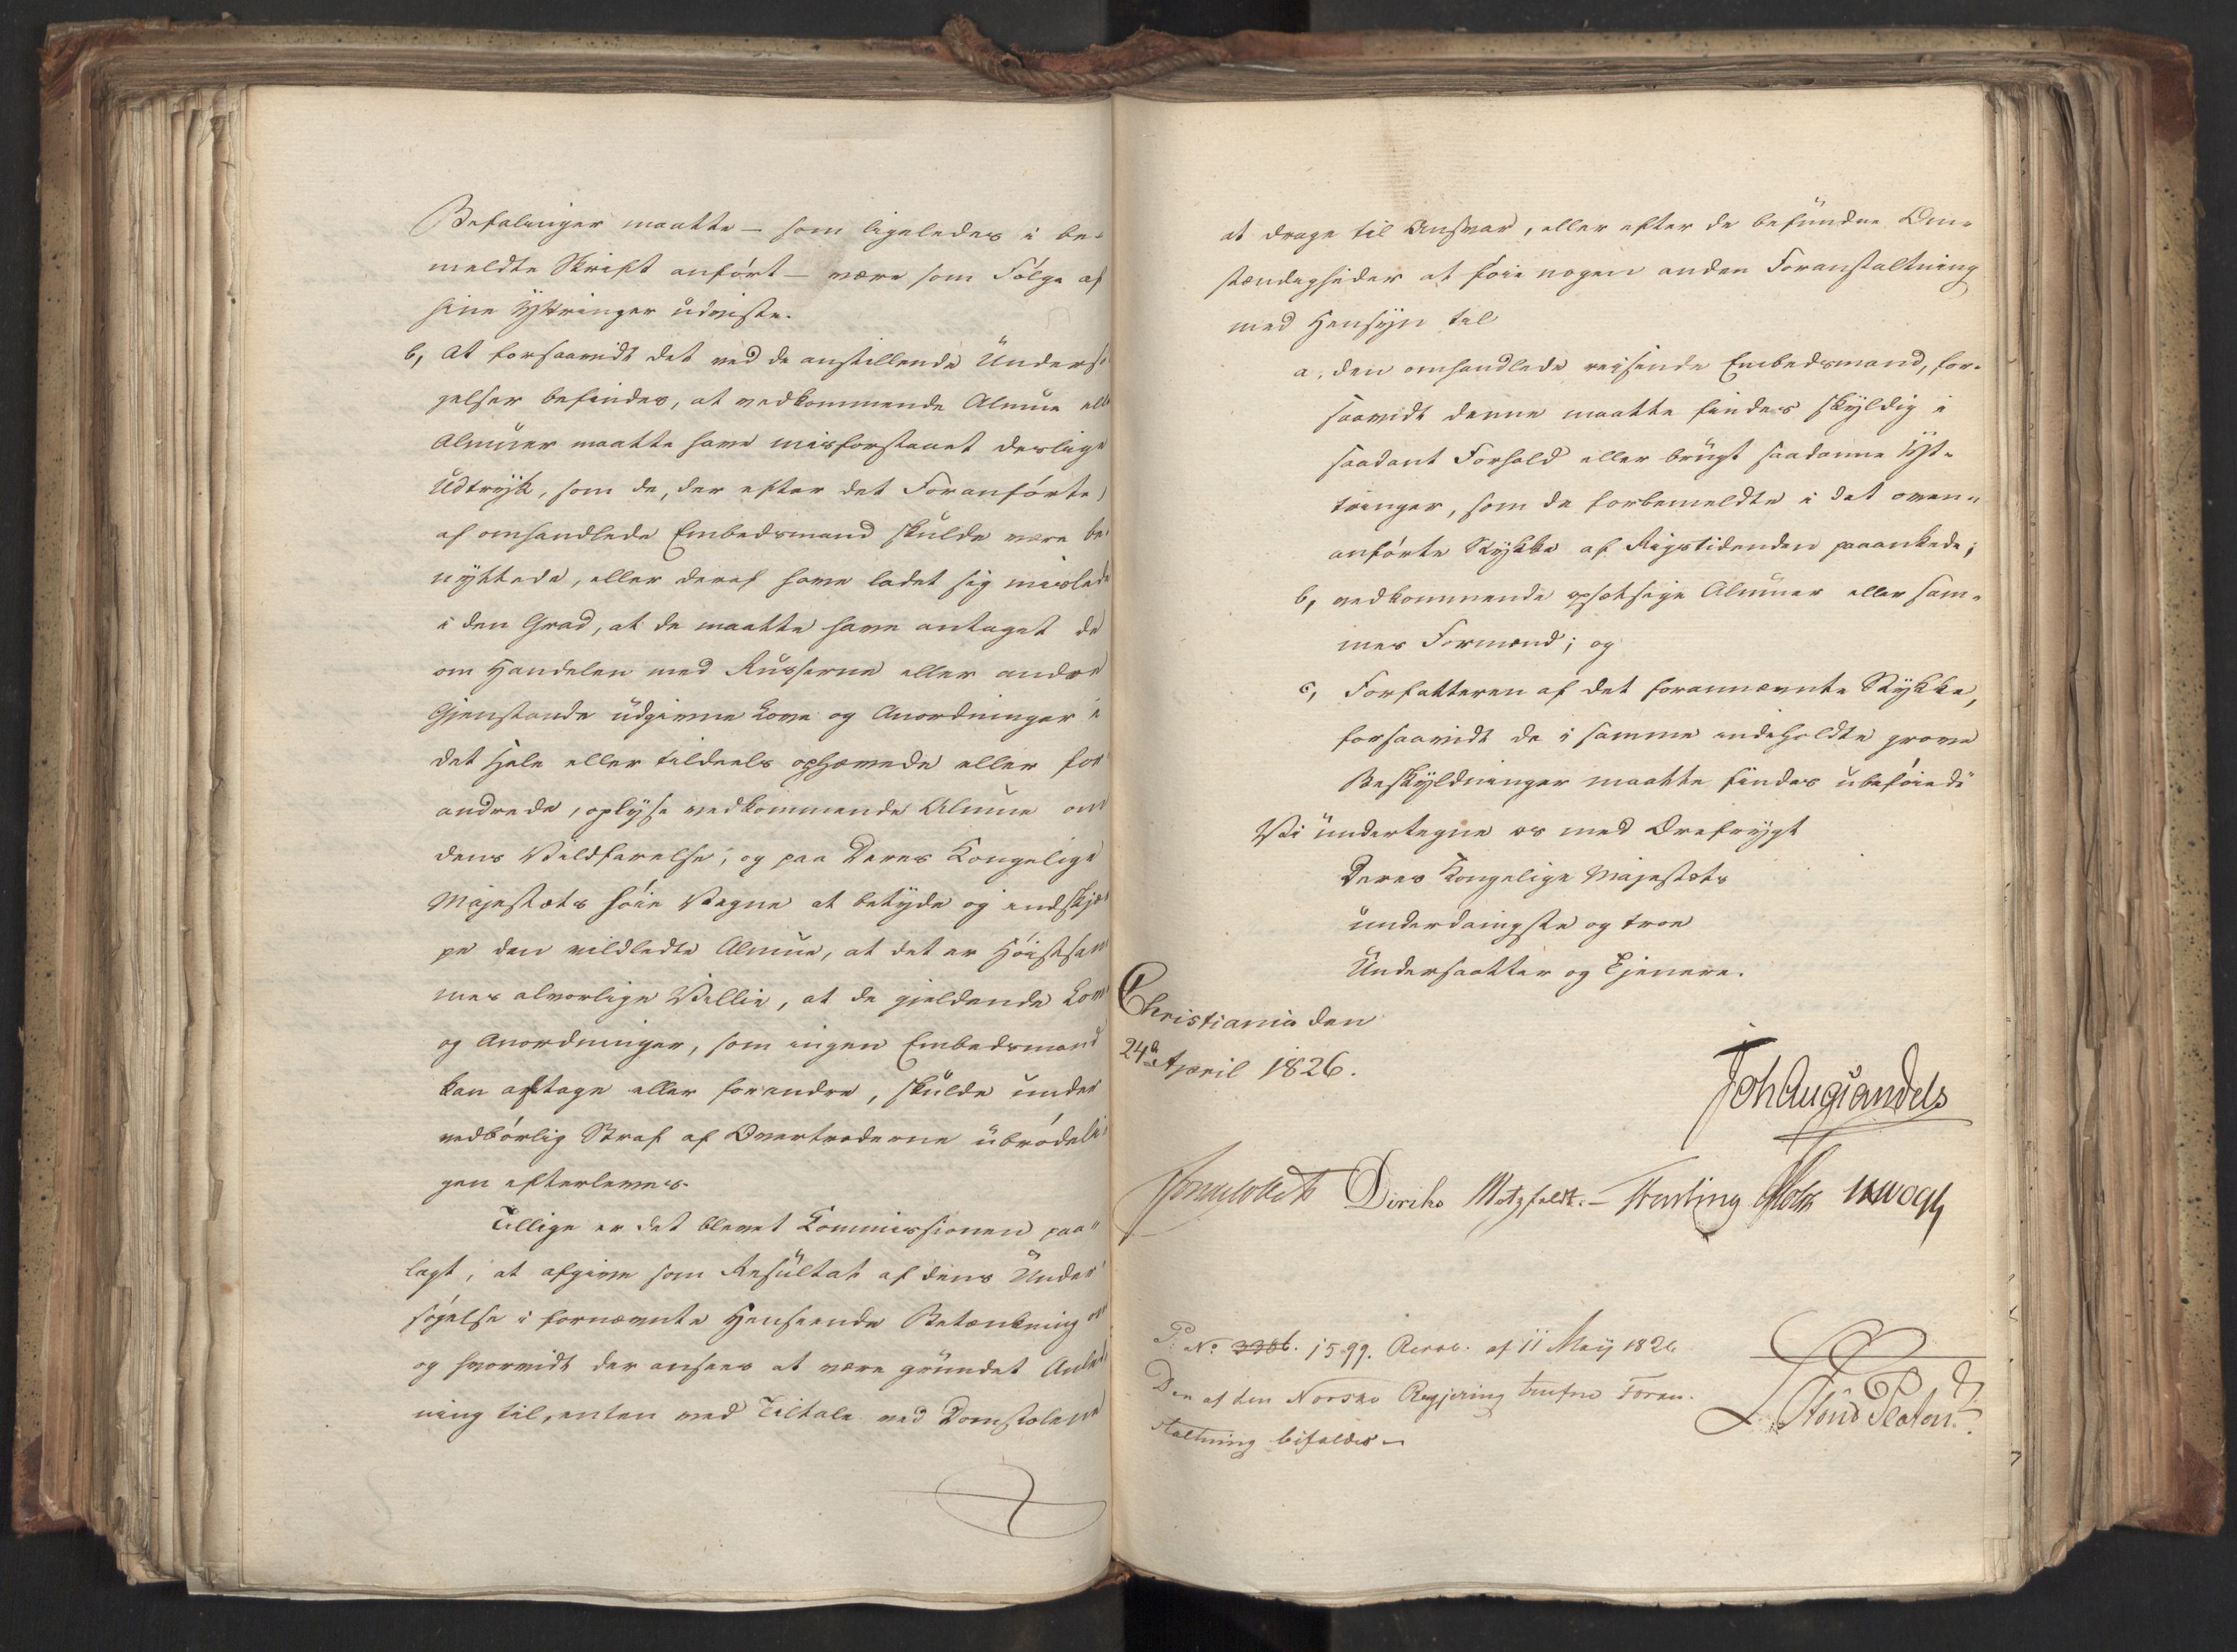 Befalinger maatte — som ligeledes i be-
meldte Skrift anført — være som Følge af
hine Yttringer udviste.
b, At forsaavidt det ved de anstillende Undersø-
gelser befindes, at vedkommende Almue eller
Almuer maatte have misforstaaet deslige
Udtryk, som de, der efter det Foranførte
af omhandlede Embedsmand skulde være be-
nyttede, eller deraf have ladet sig mislede
i den Grad, at de maatte have antaget de
om Handelen med Russerne eller andre
Gjenstande udgivne Love og Anordninger i
det Hele eller tildeels ophævede eller for-
andrede, oplyse vedkommende Almue om
dens Vildfarelse, og paa Deres Kongelige
Majestæts høie Vegne at betyde og indskjær-
pe den vildledte Almue, at det er Høistsam-
mes alvorlige Villie, at de gjeldende Love
og Anordninger, som ingen Embedsmand
kan aftage eller forandre, skulde under
vedbørlig Straf af Overtræderne ubrødeli-
gen efterleves.
Tillige er det blevet Kommissionen paa-
lagt, at afgive som Resultat af dens Under-
søgelse i fornævnte Henseende Betænkning om
og hvorvidt der ansees at være grundet Anled-
ning til, enten ved Tiltale ved Domstolene
at drage til Ansvar, eller efter de befundne Om-
stændigheder at føie nogen anden Foranstaltning
med Hensyn til
a, den omhandlede reisende Embedsmand, for-
saavidt denne maatte findes skyldig i
saadant Forhold eller brugt saadanne Yt-
tringer, som de forbemeldte i det oven-
anførte Stykke af Rigstidenden paaankede;
b, vedkommende opsætsige Almuer eller sam-
mes Formænd; og
c, Forfatteren af det forannævnte Stykke,
forsaavidt de i samme indeholdte grove
Beskyldninger maatte findes ubeføiede
Vi undertegne os med Ærefrygt
Deres Kongelige Majestæts
underdanigste og troe
Undersaatter og Tjenere.
Christiania den
24de April 1826.
Joh Aug Sandels
Diriks Motzfeldt. — Fasting Holst Vogt
P: No 3386. 1599. Resol. af 11 May 1826
Den af den Norske Regjering trufne Foran-
staltning bifaldes —